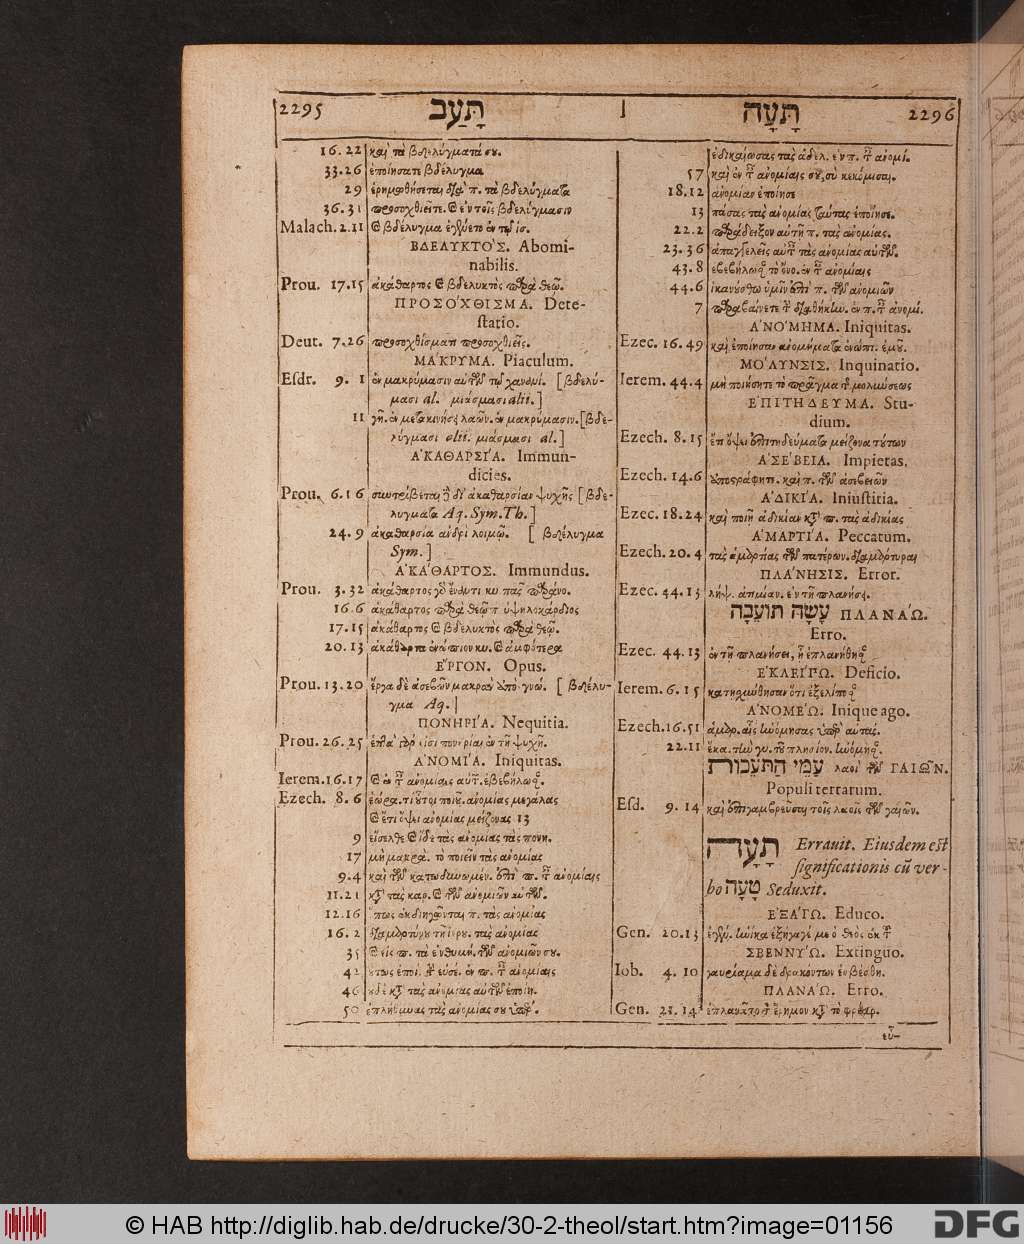 2295 תָּעַב
16.22 καὶ τὰ βδελύγματά σου.
33.26 ἐποίησατε βδέλυγμα
29 ἐρημωθήσεται διὰ π. τὰ βδελύγματα
36.31 προσοχθιεῖτε. ἐν τοῖς βδελύγμασιν
Malach. 2.11 βδέλυγμα ἐγένετο ἐν τῷ ἰσ.
ΒΔΕΛΥΚΤΟ'Σ. Abomi-
nabilis.
Prou. 17.15 ἀκάθαρτος & βδελυκτὸς παρὰ θεῷ.
ΠΡΟΣΟ'ΧΘΙΣΜΑ. Dete-
ſtatio.
Deut. 7.26 προσοχθίσματι προσοχθιεῖς.
ΜΑ'ΚΡΥΜΑ. Piaculum.
Eſdr. 9. 1 ἐν μακρύμασιν αὐτῶν τῷ χανανί. [βδελύ-
μασι al. μιάσμασι alii.]
11 γῆ. ἐν μετακινήσει λαῶν. ἐν μακρύμασιν. [βδε-
λύγμασι alii. μιάσμασι al.]
Α'ΚΑΘΑΡΣΙ'Α. Immun-
dicies.
Prou. 6.16 συντρίβεται δι' ἀκαθαρσίαν ψυχῆς [βδε-
λυγματα Aq. Sym. Th.]
24. 9 ἀκαθαρσία ἀνδρὶ λοιμῷ. [βδέλυγμα
Sym.]
Α'ΚΑ'ΘΑΡΤΟΣ. Immundus.
Prou. 3.32 ἀκάθαρτος
16.6 ἀκάθαρτος παρὰ θεῷ π ὑψηλοκάρδιος
17.15 ἀκάθαρτος & βδελυκτὸς παρὰ θεῷ.
20.13 ἀκάθαρτα ἐνώπιον κυ. & ἀμφότερα
Ε'ΡΓΟΝ. Opus.
Prou. 13.20 ἔργα δὲ ἀσεβῶν μακρὰν ἀπὸ γνώ. [βδέλυ-
γμα Aq.]
ΠΟΝΗΡΙ'Α. Nequitia.
Prou. 26.25 ἑπτὰ γάρ εἰσι πονηρίαι ἐν τῇ ψυχῇ.
Α'ΝΟΜΙ'Α. Iniquitas.
Ierem. 16.17
Ezech. 8. 6 ἑώρα. τί οὗτοι ποιοῦ. ἀνομίας μεγάλας
& ἔτι ὄψει ἀνομίας μείζονας 13
9 εἴσελθε & ἴδε τὰς ἀνομίας τὰς πονη.
17 μὴ μακρὰ. τὸ ποιεῖν τὰς ἀνομίας
9.4 καὶ τῶν κατωδυνωμέν. ἐπὶ π. τ ἀνομίαις
11.21 τὰς καρ. & τῶν ἀνομιῶν αὐτῶν.
12.16 πως ἐκδιηγῶνται π. τὰς ἀνομίας
16. 2 διαμάρτυραι τῇ ἱερου. τὰς ἀνομίας
35 & εἰς π. τὰ ἐνθυμή. τῶν ἀνομιῶν σου.
42
46 τὰς ἀνομίας αὐτῶν ἐποίη.
50 ἐπλήθυνας τὰς ἀνομίας σου ὑπὲρ.
תָּעָה 2296
ἐδικαίωσας τὰς ἀδελ. ἐν π. τ ἀνομί.
57 καὶ ἐν τ ἀνομίαις σου, σὺ κεκόμισαι.
18.12 ἀνομίαν ἐποίησε
13 πάσας τὰς ἀνομίας ταύτας ἐποίησε.
22.2 παράδειξον αὐτῇ π. τὰς ἀνομίας.
23.36 ἀπαγγελεῖς αὐτ τὰς ἀνομίας αὐτῶν.
43.8 ἐβεβήλωσ τὸ ὄνο. ἐν τ ἀνομίαις
44.6 ἱκανούσθω ὑμῖν ἀπὸ π. τῶν ἀνομιῶν
7 παραβαίνετε τ διαθήκην. ἐν π. τ ἀνομί.
Α'ΝΟ'ΜΗΜΑ. Iniquitas.
Ezec. 16.49 καὶ ἐποίησαν ἀνομήματα ἐνώπι. ἐμοῦ.
ΜΟ'ΛΥΝΣΙΣ. Inquinatio.
Ierem. 44.4 μὴ ποιήσητε τὸ πρᾶγμα τ μολύσεως
Ε'ΠΙΤΗ'ΔΕΥΜΑ. Stu-
dium.
Ezech. 8.15 ἔτι ὄψει ἐπιτηδεύματα μείζονα τούτων
Α'ΣΕ'ΒΕΙΑ. Impietas.
Ezech. 14.6 ἀποστράφητε. καὶ π. τῶν ἀσεβειῶν
Α'ΔΙΚΙ'Α. Iniuſtitia.
Ezec. 18.24 καὶ ποιῇ ἀδικίαν κτ π. τὰς ἀδικίας
Α'ΜΑΡΤΙ'Α. Peccatum.
Ezech. 20.4 τὰς ἁμαρτίας τῶν πατέρων. διαμάρτυραι
ΠΛΑ'ΝΗΣΙΣ. Error.
Ezec. 44.13 λήψ. ἀτιμίαν. ἐν τῇ πλανήσει.
עָשָׂה תּוֹעֵבָה ΠΛΑΝΑ'Ω.
Erro.
Ezec. 44.13 ἐν τῇ πλανήσει, ᾗ ἐπλανήθησ
Ε'ΚΛΕΙ'ΠΩ. Deficio.
Ierem. 6.15 κατῃσχύνθησαν ὅτι ἐξελίποσ
Α'ΝΟΜΕ'Ω. Inique ago.
Ezech. 16.51 ἁμαρ. αἷς ἠνόμησας ὑπὲρ αὐτάς.
22.11 ἕκα. τὴν γυ. τοῦ πλησίον. ἠνόμησ.
עַמֵּי הַתֹּעֵבוֹת λαοὶ τῶν ΓΑΙΩ͂Ν.
Populi terrarum.
Eſd. 9. 14 καὶ ἐπιγαμβρεῦσαι τοῖς λαοῖς τῶν γαιῶν.
תָּעָה Errauit. Eiusdem eſt
ſignificationis cū ver-
bo טָעָה Seduxit.
Ε'ΞΑ'ΓΩ. Educo.
Gen. 20.13 ἐγέν. ἡνίκα ἐξήγαγέ με ὁ θεὸς ἐκ τ
ΣΒΕΝΝΥ'Ω. Extinguo.
Iob. 4. 10 γαυρίαμα δὲ δρακόντων ἐσβέσθη.
ΠΛΑΝΑ'Ω. Erro.
Gen. 21.14 ἐπλανᾶτο τ ἔρημον κτ τὸ φρέαρ.
εὖ-
© HAB http://diglib.hab.de/drucke/30-2-theol/start.htm?image=01156
DFG